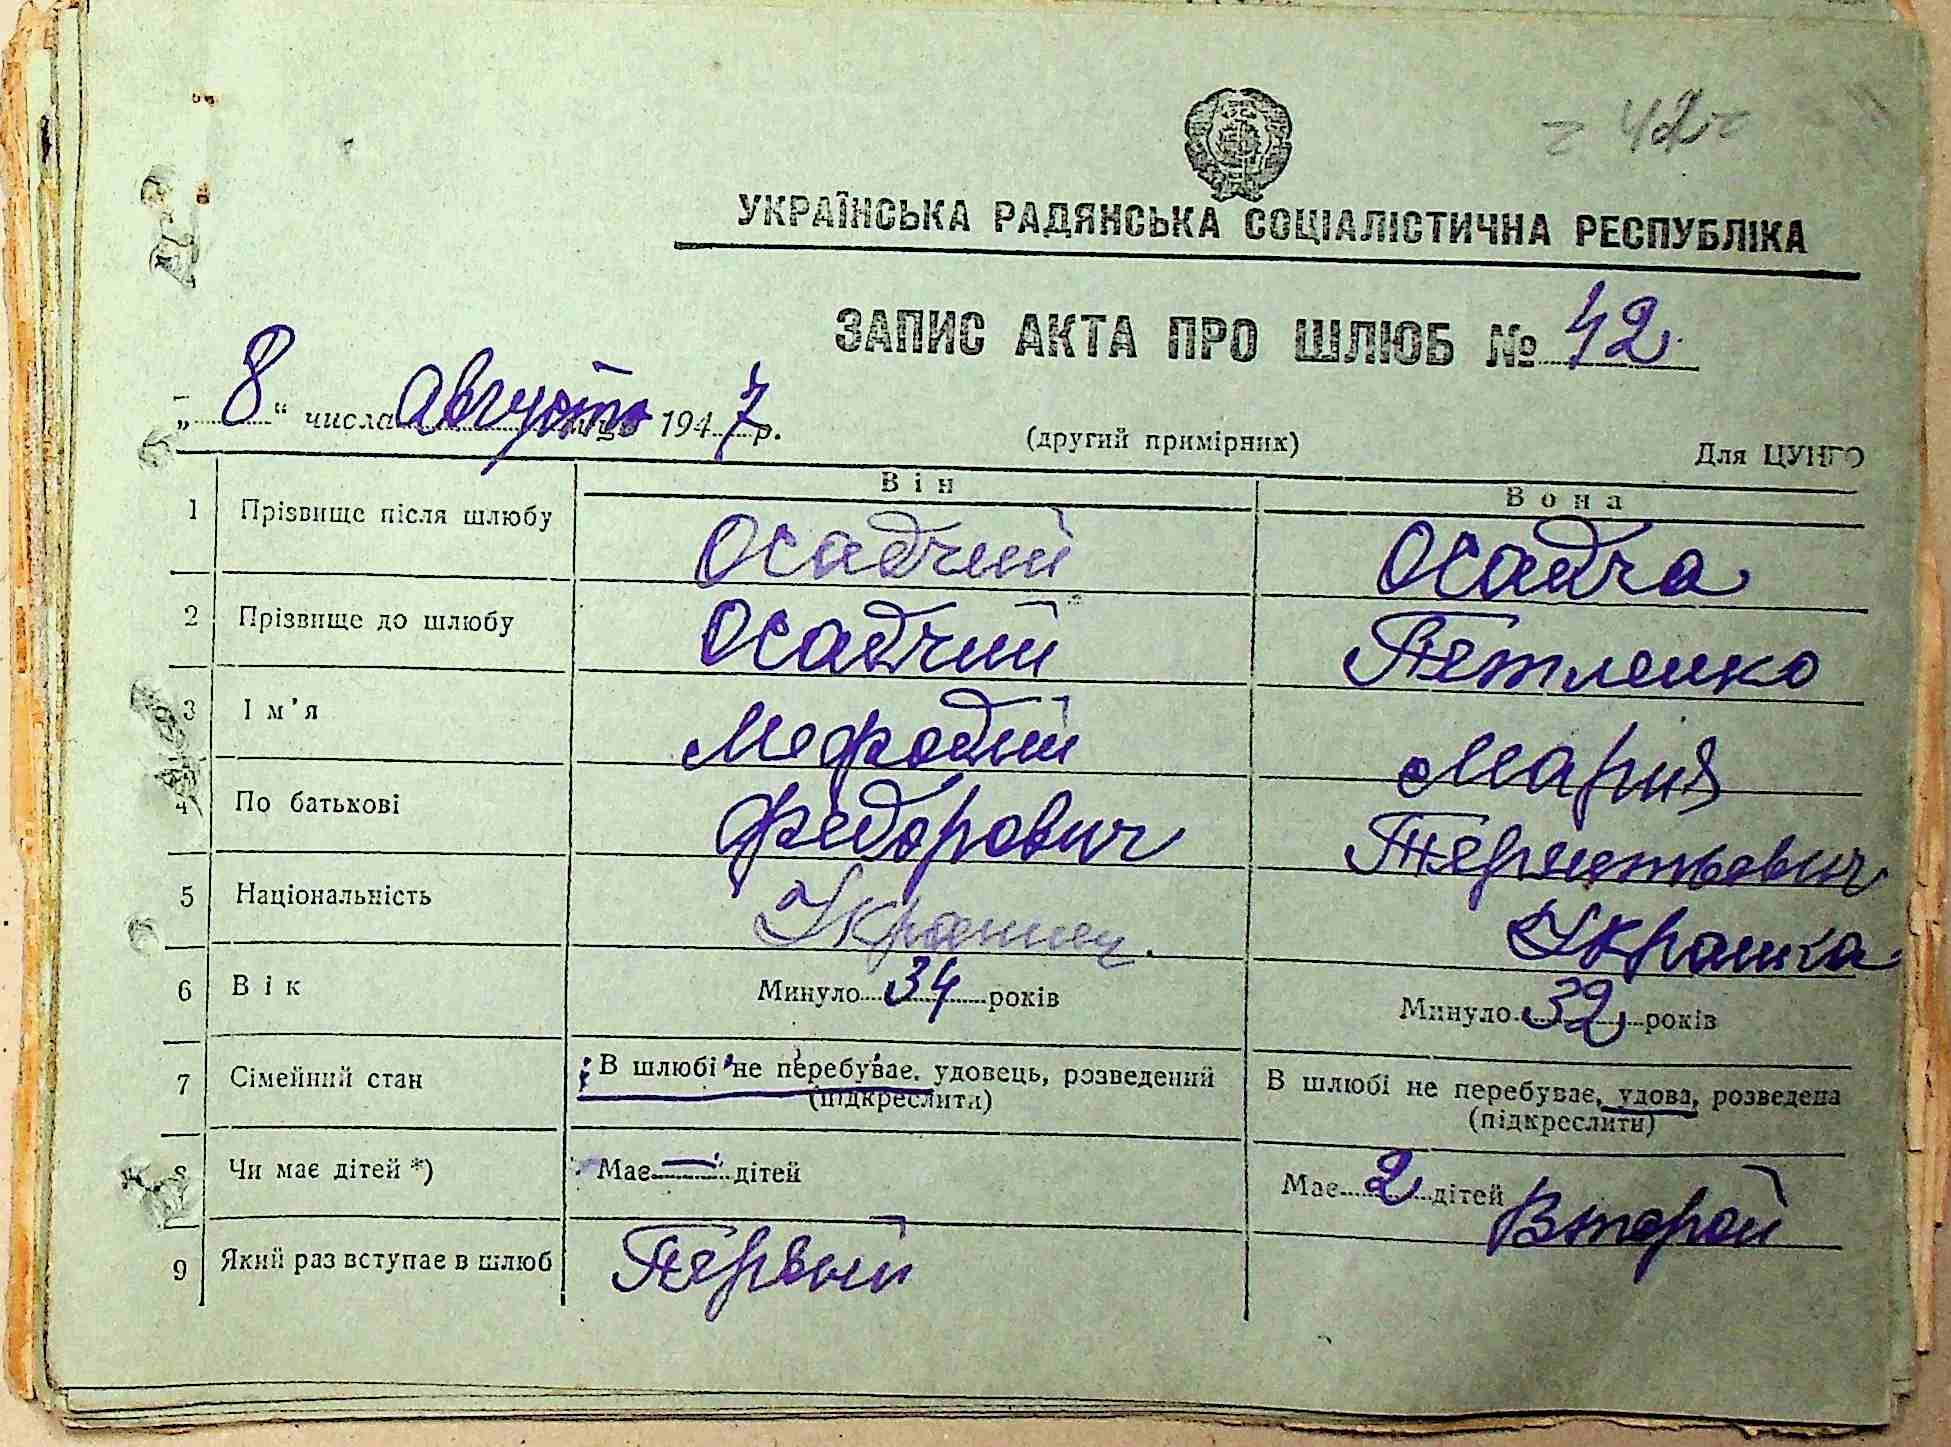 42
УКРАЇНСЬКА РАДЯНСЬКА СОЦІАЛІСТИЧНА РЕСПУБЛІКА
ЗАПИС АКТА ПРО ШЛЮБ № 42
„8“ числа августа 1947 р.
(другий примірник) Для ЦУНГО
Він Вона
1 Прізвище після шлюбу Осадчий Осадча
2 Прізвище до шлюбу Осадчий Петленко
3 Ім’я Мефодий Мария
4 По батькові Федорович
5 Національність Украинец Украинка
6 Вік Минуло 34 років Минуло 32 років
7 Сімейний стан В шлюбі не перебуває, удовець, розведений В шлюбі не перебуває, удова, розведена
(підкреслити) (підкреслити)
8 Чи має дітей *) Має — дітей Має 2 дітей
9 Який раз вступає в шлюб Первый Второй